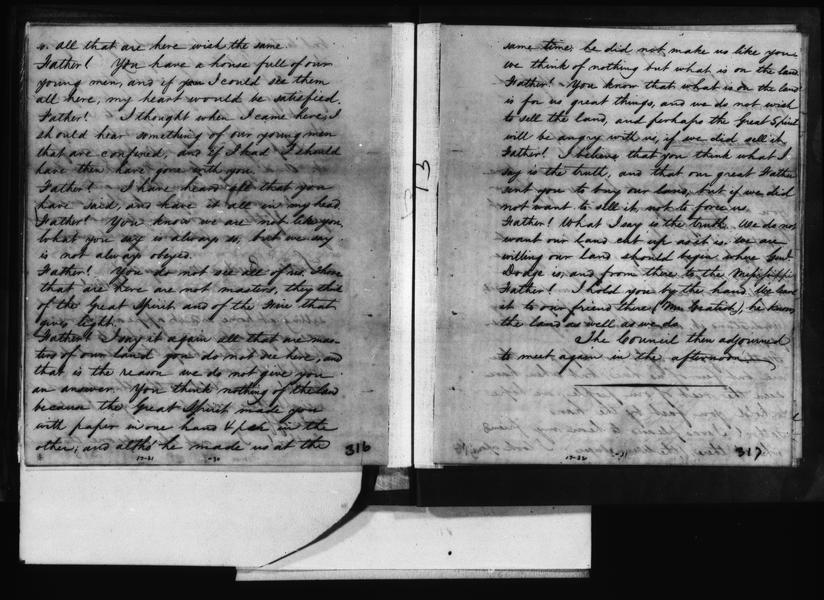 v. all that are here wish the same.
Father! You have a house full of our
young men, and if you I could see them
all here, my heart would be satisfied.
Father! I thought when I came here, I
should hear something of our young men
that are confined, and if I had I should
have then have gone with you.
Father! I have heard all that you
have said, and have it all in my head
Father! You know we are not like you,
what you say is always so, but we say
is not always obeyed.
Father! You do not see all of us. Those
that are here are not masters, they think
of the Great Spirit and of the Fire that
gives light.
Father! I say it again all that are mas-
ters of our land you do not see here, and
that is the reason we do not give you
an answer. You think nothing of the land
because the Great Spirit made you
with paper in one hand & pen in the
other; and altho' he made us at the
316
17-31 -30
313
same time, he did not make us like you
we think of nothing but what is on the land
Father! You know that what is on the land
is for us great things, and we do not wish
to sell the land, and perhaps the Great Spirit
will be angry with us, if we did sell it.
Father! I believe that you think what I
say is the truth, and that our great Father
sent you to buy our land, but if we did
not want to sell it, not to force us.
Father! What I say is the truth. We do not
want our land cut up as it is. we are
willing our land should begin where Genl
Dodge is, and from there to the Mississippi
Father! I hold you by the hand. We leave
it to our friend there (Mr. Catish), he knows
the land as well as we do.
The Council then adjourned
to meet again in the afternoon
317
17-32 -31